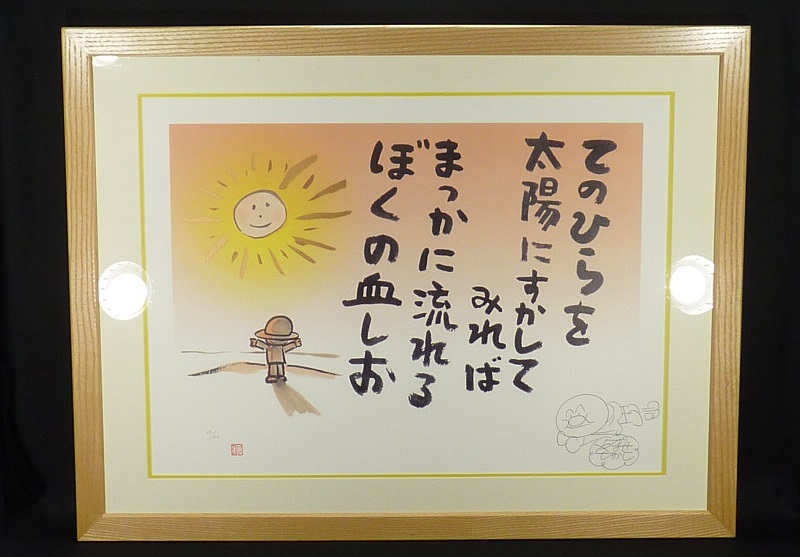 てのひらを
太陽にすかして
みれば
まっかに流れる
ぼくの血しお